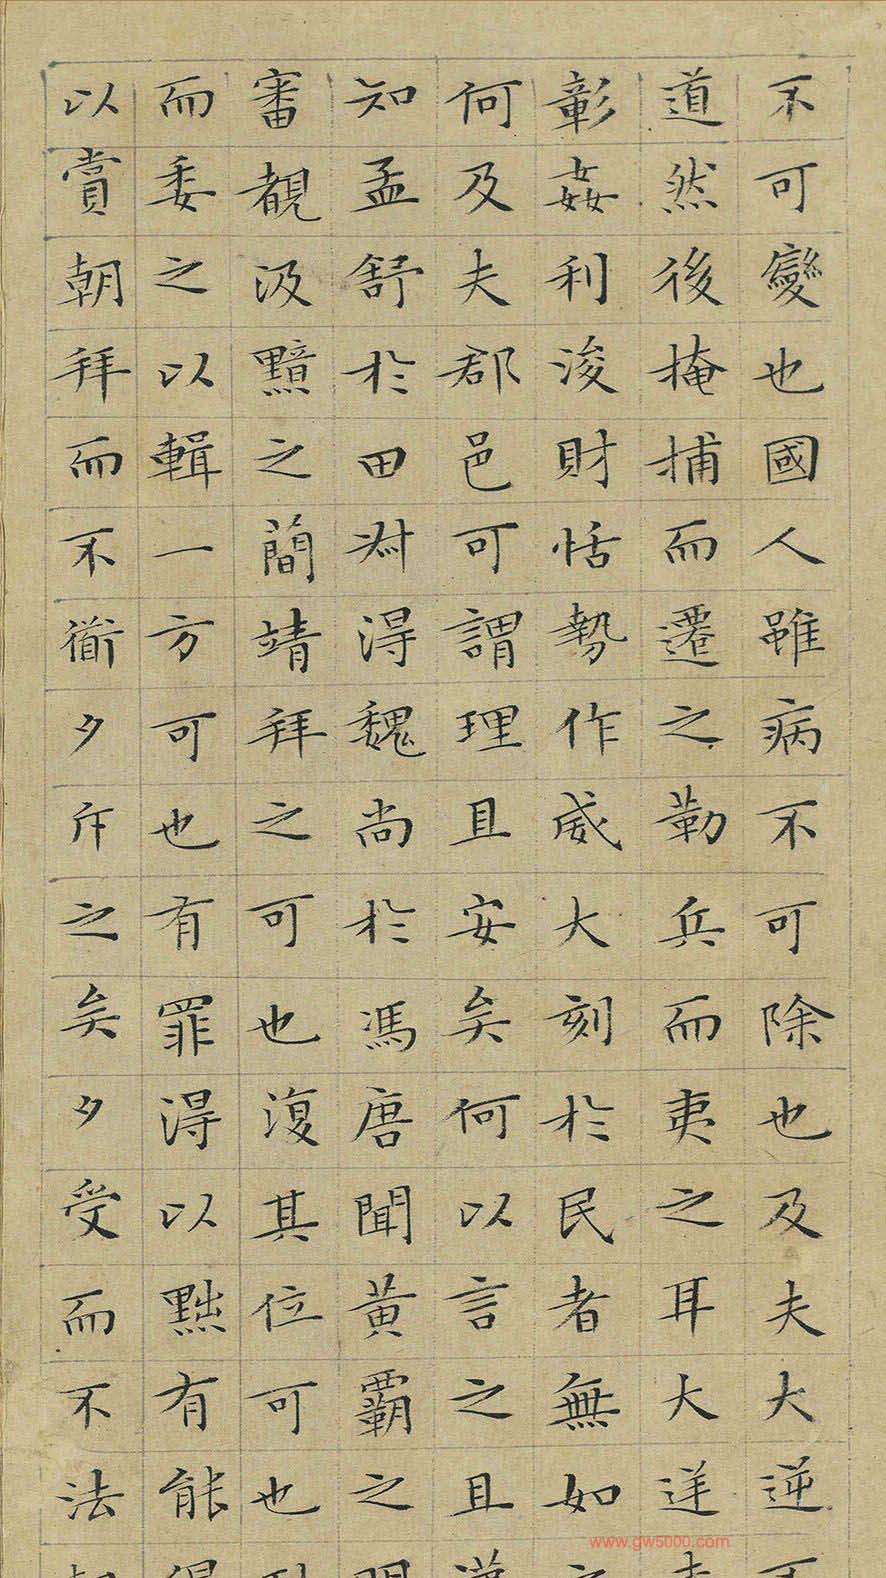 不可變也國人雖病不可除也及夫大逆
道然後掩捕而遷之勒兵而夷之耳大逆
彰姦利浚財怙勢作威大刻於民者無如
何及夫郡邑可謂理且安矣何以言之且
知孟舒於田叔得魏尚於馮唐聞黃霸之
審覩汲黯之簡靖拜之可也復其位可也
而委之以輯一方可也有罪得以黜有能
以賞朝拜而不衜夕斥之矣夕受而不法
www.gw5000.com